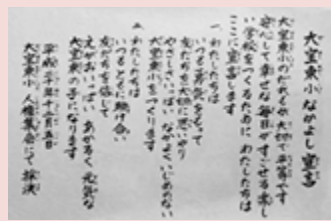 大室東小 なかよし宣言
大室東小のだれもが大切で平等です
安心して幸せな毎日がすごせる楽し
い学校をつくるために わたしたちは
ここに宣言します
一、わたしたちは
いつも勇気をもって
友だちを大切に思いやり
やさしさいっぱい なかよくいじめのない
大室東小をつくります
一、わたしたちは
いつもともに助け合い
友だちを信じて
えがおいっぱい あかるく元気な
大室東の子になります
平成二十年十二月五日
大室東小 人権集会にて 採決